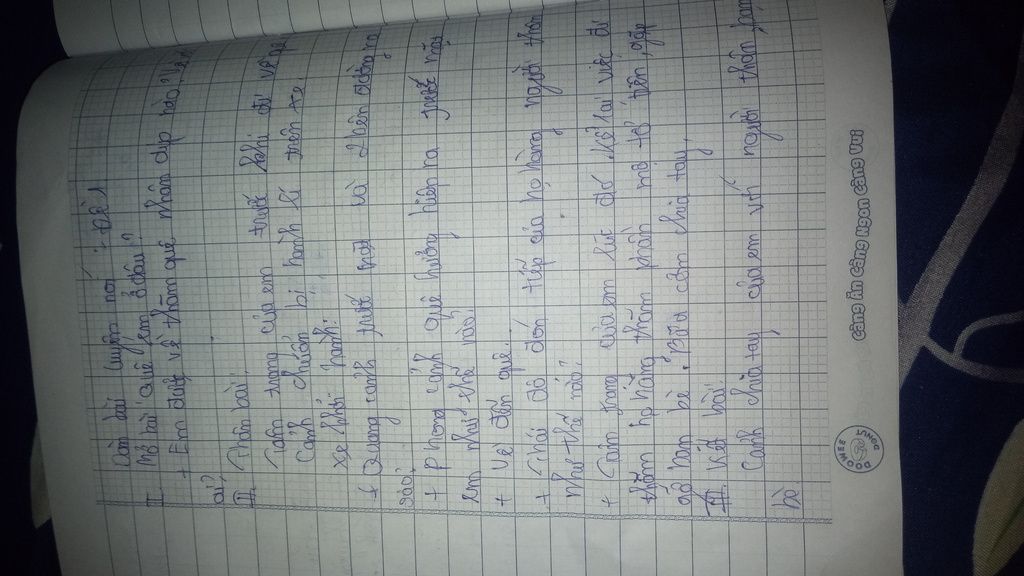 Dàn bài luyện nói : Đề 1
I Mở bài: Quê em ở đâu?
+ Em được về thăm quê nhân dịp nào? Với
ai?
II. Thân bài:
Tâm trạng của em trước khi đi về quê
Cảnh chuẩn bị hành lí trên xe
Xe khởi hành:
+ Quang cảnh trước mặt và 2 bên đường ra
sao?
+ Phong cảnh quê hương hiện ra trước mắt
em như thế nào?
+ Về đến quê.
+ Thái độ đón tiếp của họ hàng, người thân
như thế nào?
+ Tâm trạng của em lúc đó. Kể lại việc đi
thăm họ hàng, thăm phần mộ tổ tiên, gặp
gỡ bạn bè. Bữa cơm chia tay.
III. Kết bài:
Cảnh chia tay của em với người thân, bạn
bè
DOONG LINGO BEBE
CÀNG ĂN CÀNG NGON CÀNG VUI